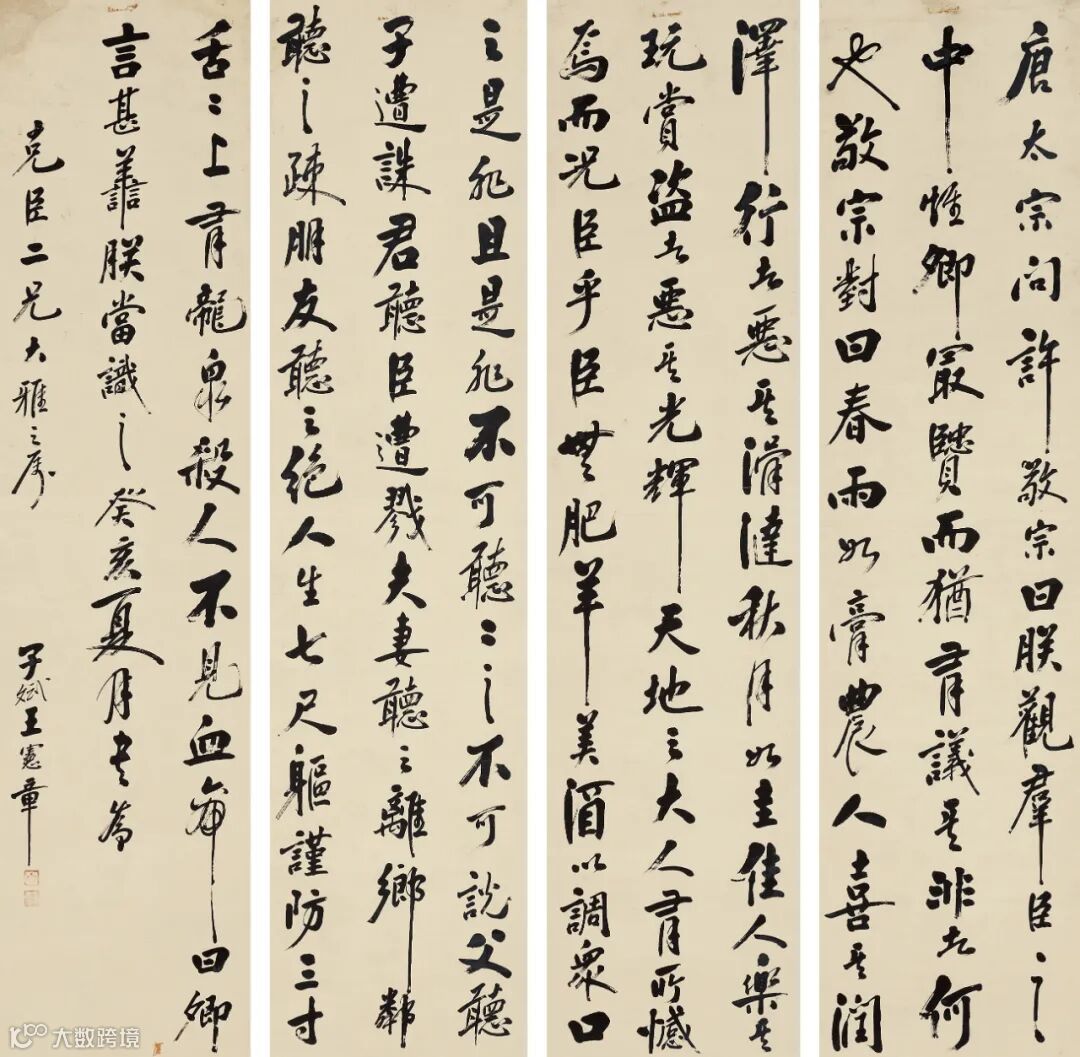 唐太宗問許敬宗曰朕觀羣臣之
中惟卿冣賢而猶有議其非者何
也敬宗對曰春雨如膏農人喜其潤
澤行者惡其滑澾秋月如圭佳人樂其
玩賞盜者惡其光輝天地之大人有所憾
焉而況臣乎臣無肥羊美酒以調衆口
之是非且是非不可聽〻之不可說父聽
子遭誅君聽臣遭戮夫妻聽之離鄉鄰
聽之疎朋友聽之絕人生七尺軀謹防三寸
舌〻上有龍泉殺人不見血帝曰卿
言甚譱朕當識之癸亥夏月書爲
克臣二兄大雅之屬
子斌王憲章
大数跨境